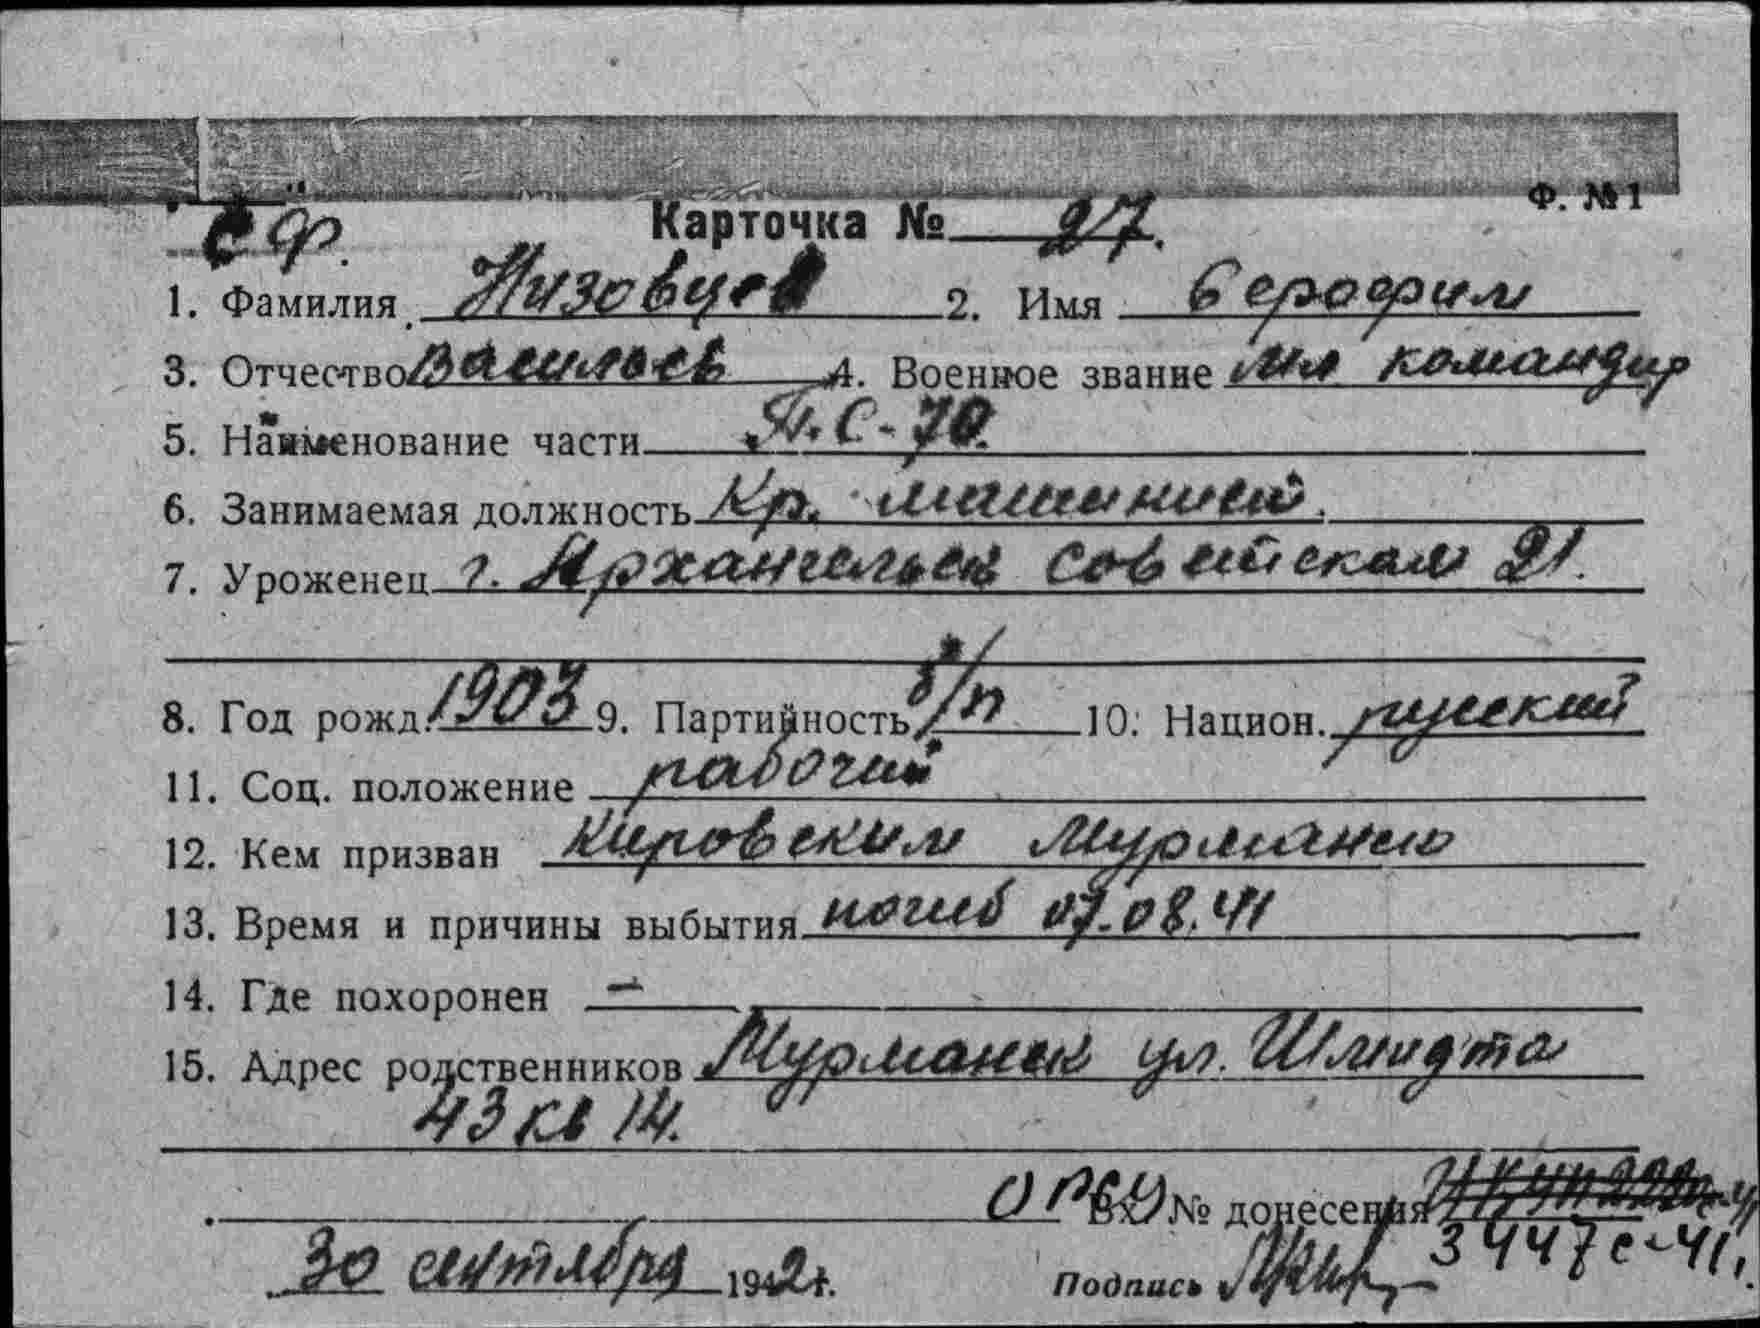 Ф. №1
СФ. Карточка № 27.
1. Фамилия Низовцев 2. Имя Серофим
3. Отчество Васильев 4. Военное звание мл командир
5. Наименование части П.С-70.
6. Занимаемая должность Кр. машинист.
7. Уроженец г. Архангельск Советская 21.
8. Год рожд. 1903 9. Партийность б/п 10. Национ. русский
11. Соц. положение рабочий
12. Кем призван Кировским Мурманск
13. Время и причины выбытия погиб 07.08.41
14. Где похоронен —
15. Адрес родственников Мурманск ул. Шмидта
43 кв 14.
ОРСУ Вх. № донесения
3447с-41.
30 сентября 1942г. Подпись